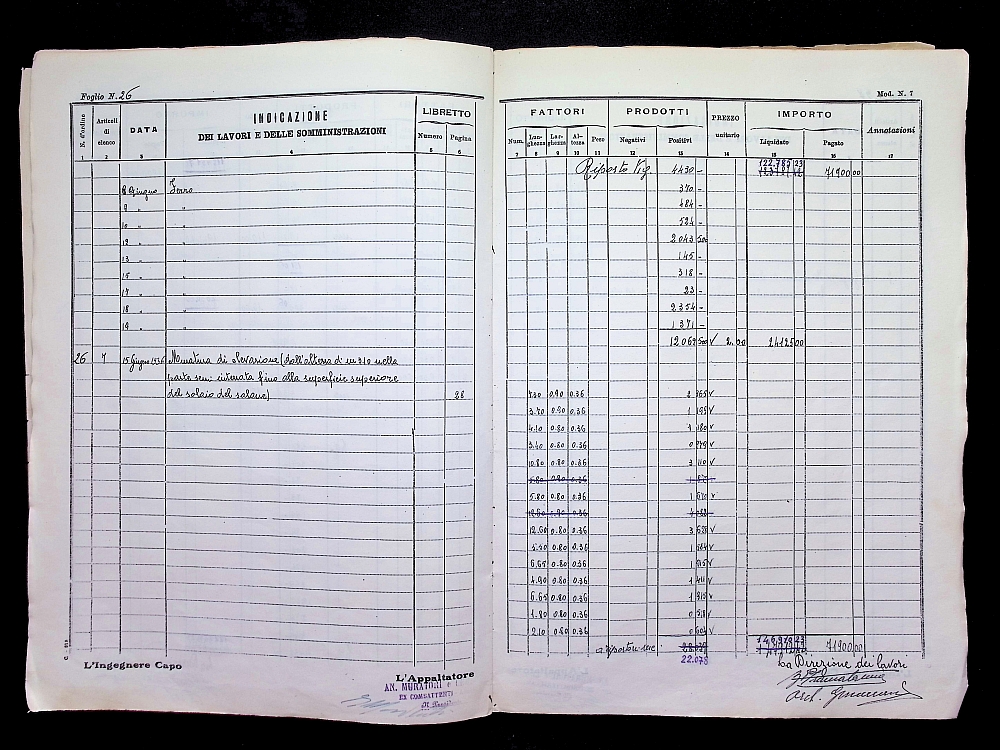 Foglio N. 26
Mod. N. 7
N. d'ordine
Articoli di elenco
DATA
INDICAZIONE
DEI LAVORI E DELLE SOMMINISTRAZIONI
LIBRETTO
Numero Pagina
FATTORI
Num. Lunghezza Larghezza Altezza Peso
PRODOTTI
Negativi Positivi
PREZZO unitario
IMPORTO
Liquidato Pagato
Annotazioni
1 2 3 4 5 6 7 8 9 10 11 12 13 14 15 16 17
Riporto 4430 - 122.785 23 71900 00
8 Giugno Ferro 370 -
9 " " 484 -
10 " " 524 -
12 " " 2043 500
13 " " 145 -
15 " " 318 -
17 " " 23 -
18 " " 2354 -
19 " " 1371 -
12062 500 v 2.00 24125 00
26 7 15 Giugno 1936 Muratura di elevazione (dall'altezza di m 3.10 nella
parte semi interrata fino alla superficie superiore
del solaio del solaio) 28 7.30 0.90 0.36 2 365 v
3.70 0.90 0.36 1 199 v
4.10 0.80 0.36 1 180 v
3.40 0.80 0.36 0 979 v
10.80 0.80 0.36 3 110 v
5.80 0.80 0.36
5.80 0.80 0.36 1 670 v
12.60 0.80 0.36
12.60 0.80 0.36 3 628 v
0.80 0.36 v
6.65 0.80 0.36 1 915 v
4.90 0.80 0.36 1 411 v
6.65 0.80 0.36 1 915 v
1.80 0.80 0.36 0 518 v
2.10 0.80 0.36 0 604 v
a riportarsi 22.078 71900 00
L'Ingegnere Capo
L'Appaltatore
AN. MURATORI
EX COMBATTENTI
La Direzione dei lavori
Arch.